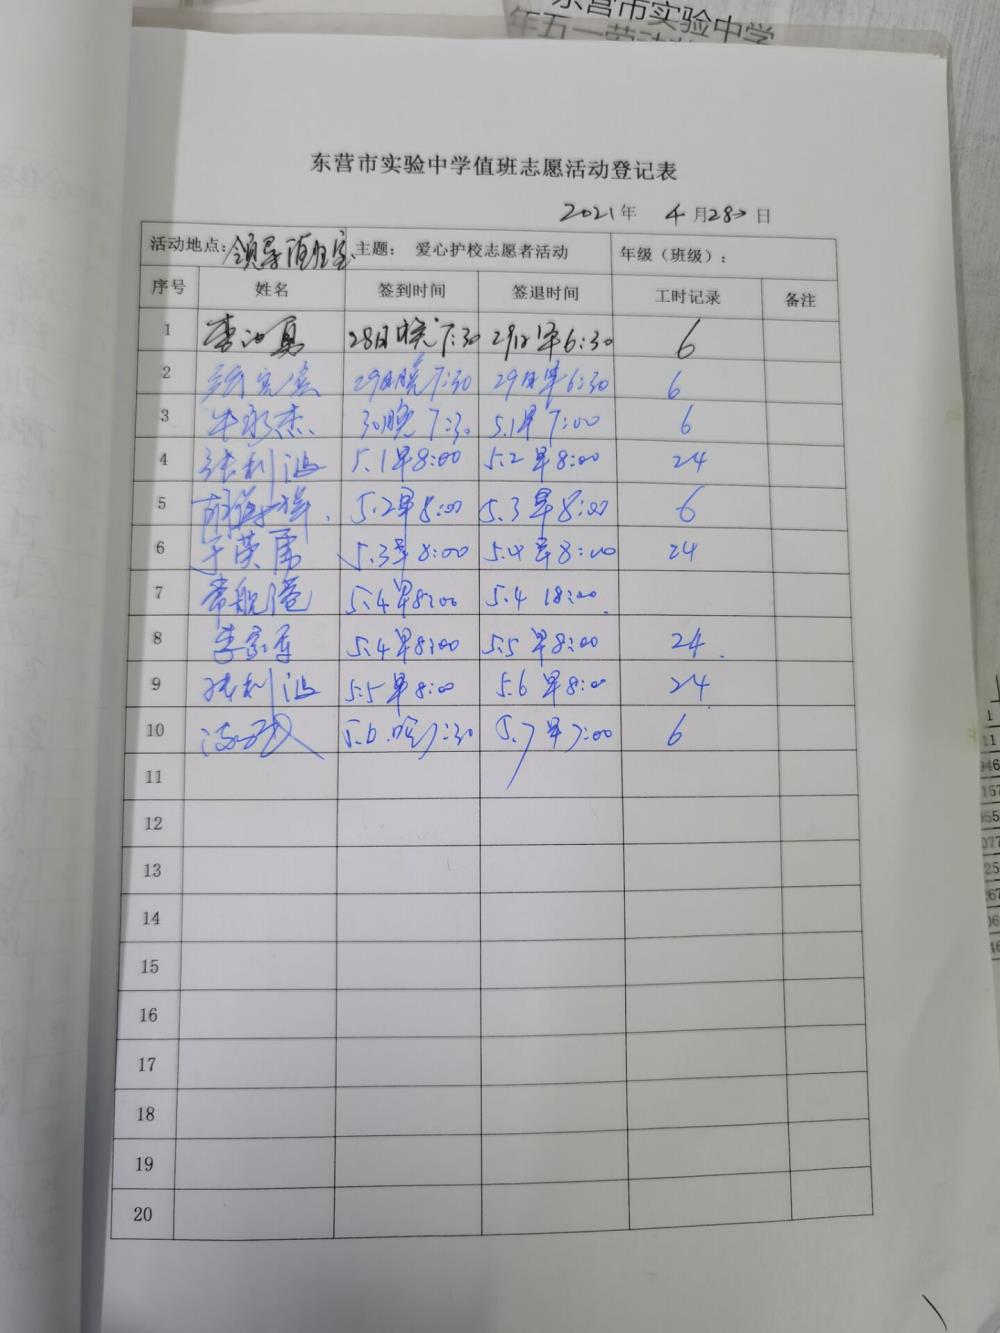 东营市实验中学
东营市实验中学值班志愿活动登记表
2021年 4月28日
活动地点：领导值班室 主题： 爱心护校志愿者活动 年级（班级）：
序号 姓名 签到时间 签退时间 工时记录 备注
1 28日晚7:30 29日早6:30 6
2 29日晚7:30 29日早6:30 6
3 牛永杰 30晚7:30 5.1早7:00 6
4 张利鸿 5.1早8:00 5.2早8:00 24
5 5.2早8:00 5.3早8:00 6
6 于英 5.3早8:00 5.4早8:00 24
7 5.4早8:00 5.4 18:00
8 李家军 5.4早8:00 5.5早8:00 24
9 张利鸿 5.5早8:00 5.6早8:00 24
10 5.6晚7:30 5.7早7:00 6
11
12
13
14
15
16
17
18
19
20